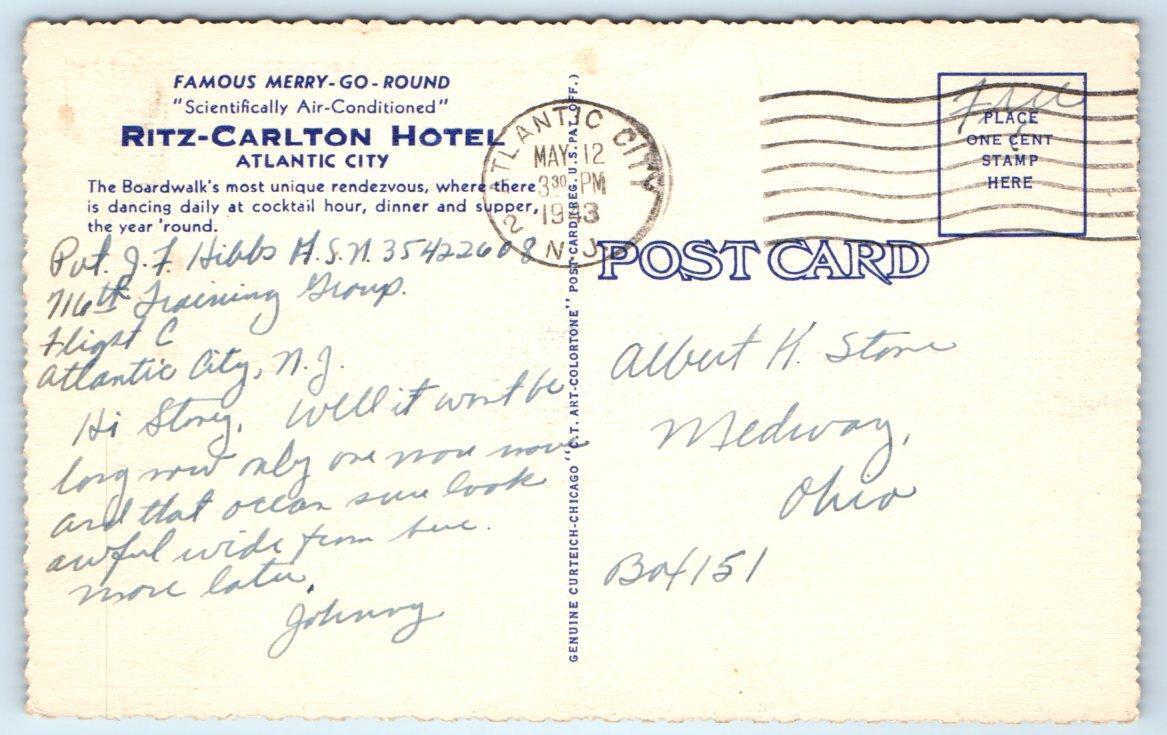 FAMOUS MERRY-GO-ROUND
"Scientifically Air-Conditioned"
RITZ-CARLTON HOTEL
ATLANTIC CITY
The Boardwalk's most unique rendezvous, where there
is dancing daily at cocktail hour, dinner and supper,
the year 'round.
Pvt. J. F. Hibbs A.S.N. 35422608
716th Training Group.
Flight C
Atlantic City, N.J.
Hi Stoney, Well it wont be
long now only one more move
and that ocean sure look
awful wide from here.
more later,
Johnny
GENUINE CURTEICH-CHICAGO "C.T. ART-COLORTONE" POST CARD (REG. U.S. PAT. OFF.)
ATLANTIC CITY
MAY 12
3 30 PM
1943
2 N.J.
Free
PLACE
ONE CENT
STAMP
HERE
POST CARD
Albert H. Stone
Medway,
Ohio
Box 151